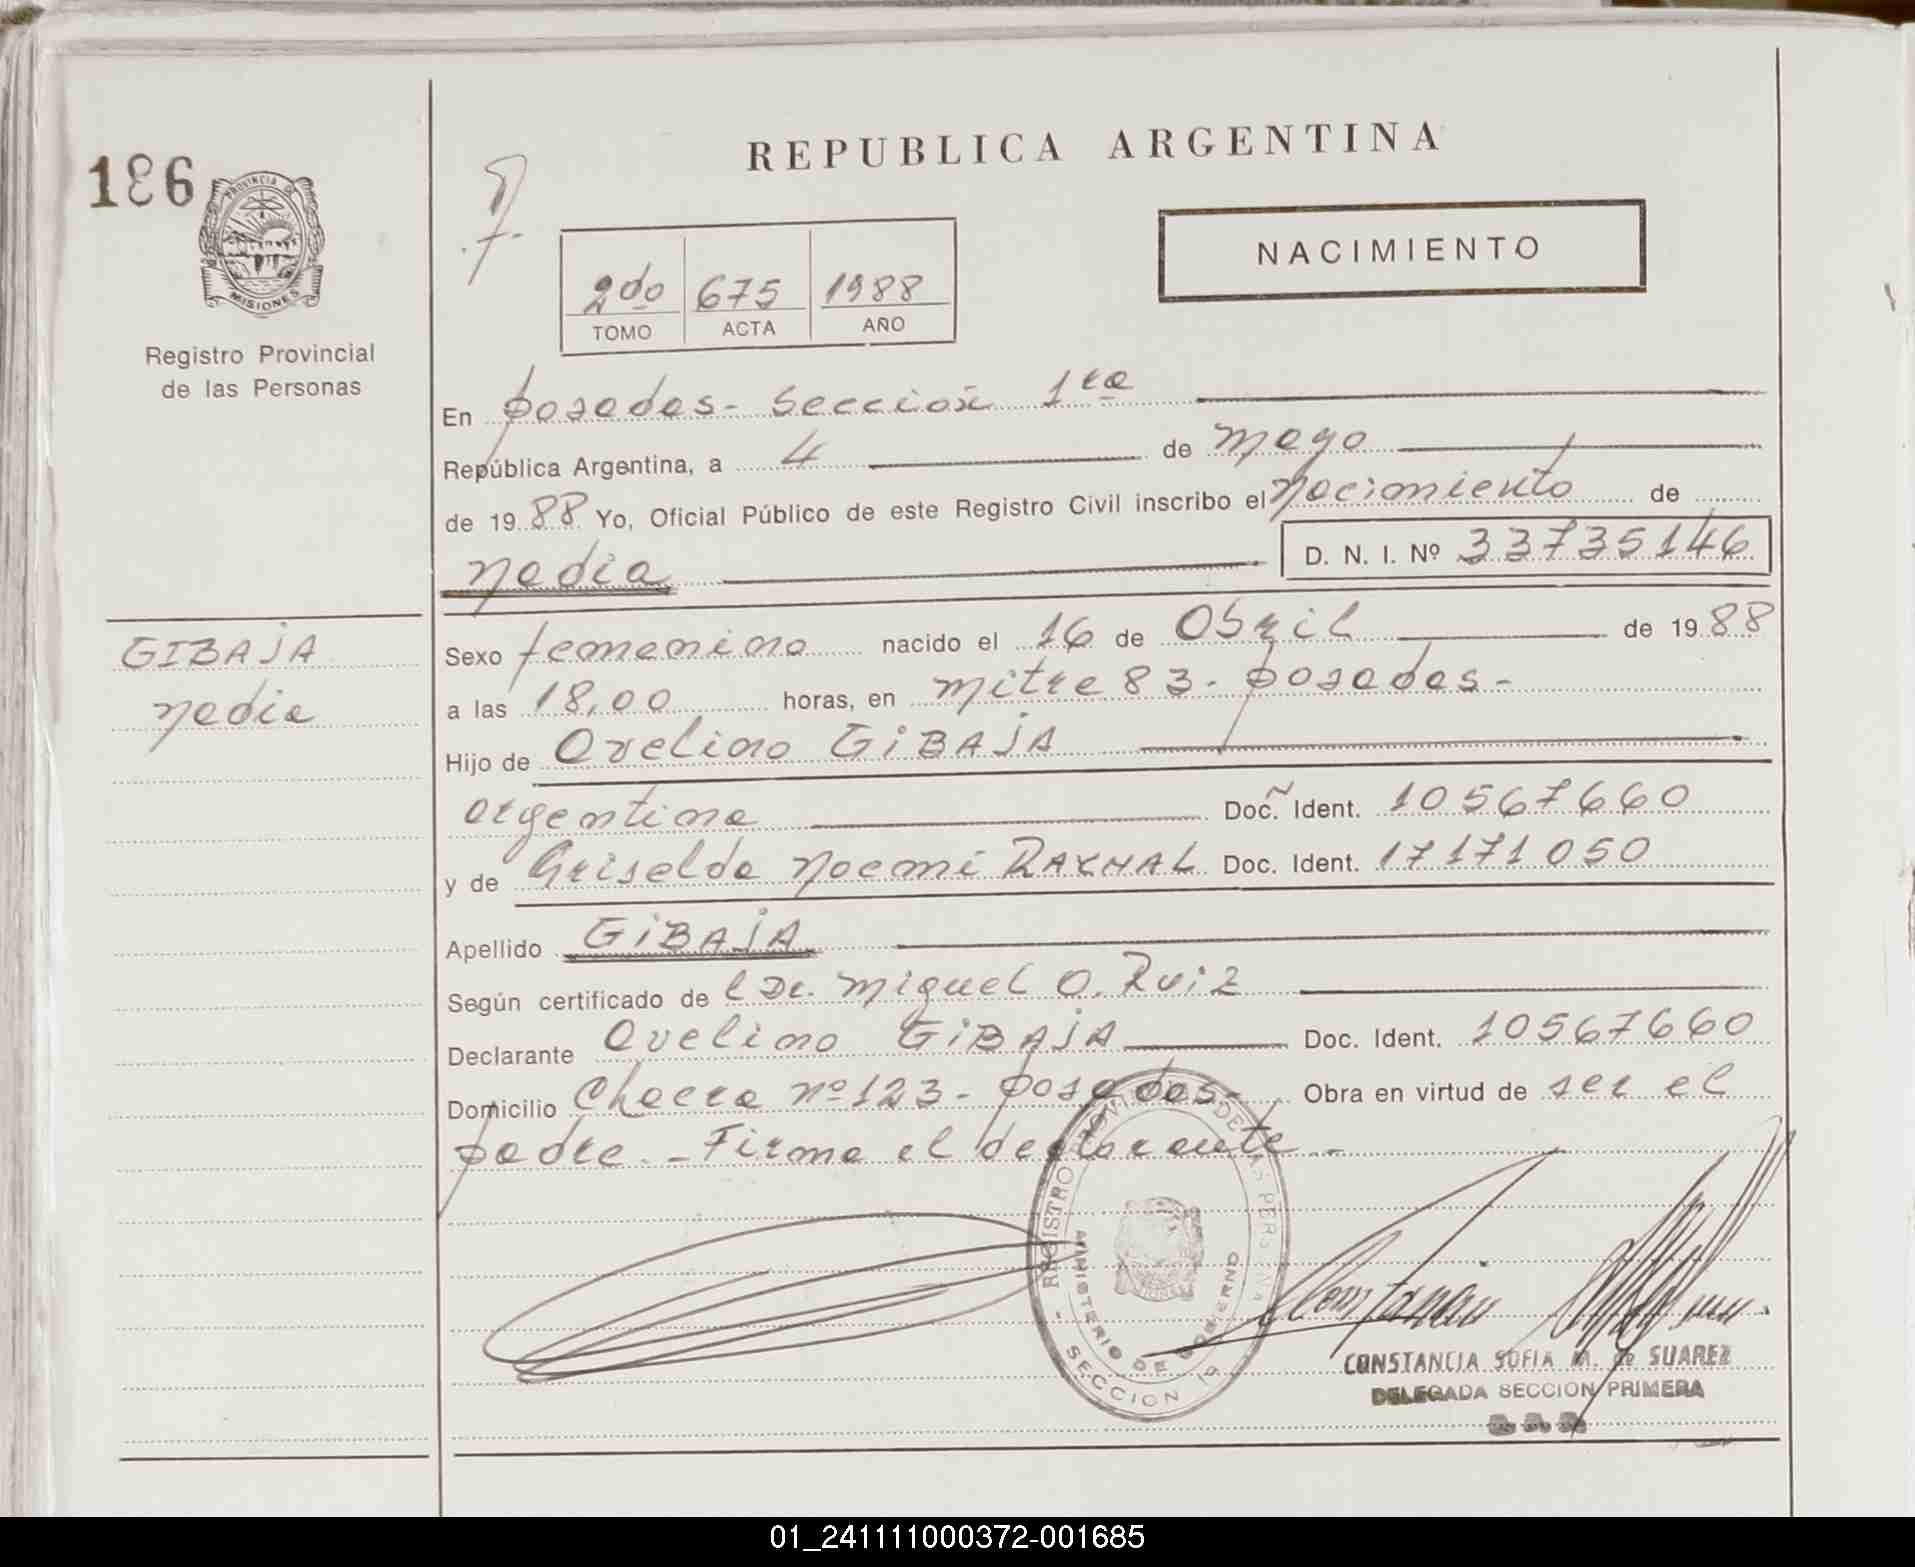 186
PROVINCIA DE
MISIONES
Registro Provincial
de las Personas
REPUBLICA ARGENTINA
NACIMIENTO
2do 675 1988
TOMO ACTA AÑO
En posadas - sección 1ra
República Argentina, a 4 de mayo
de 1988 Yo, Oficial Público de este Registro Civil inscribo el nacimiento de
nadia D. N. I. Nº 33735146
GIBAJA
nadia
Sexo femenino nacido el 16 de Abril de 1988
a las 18,00 horas, en mitre 83 - posadas -
Hijo de Avelino GIBAJA
argentina Doc. Ident. 10567660
y de Griselda Noemi Doc. Ident. 17171050
Apellido GIBAJA
Según certificado de l Dr. Miguel A. Ruiz
Declarante Avelino GIBAJA Doc. Ident. 10567660
Domicilio Chacra nº 123 - posadas - Obra en virtud de ser el
padre. - Firma el declarante -
REGISTRO PROVINCIAL DE LAS PERSONAS
MINISTERIO DE GOBIERNO
SECCION 1ª
CONSTANCIA SOFIA M. de SUAREZ
DELEGADA SECCION PRIMERA
01_241111000372-001685